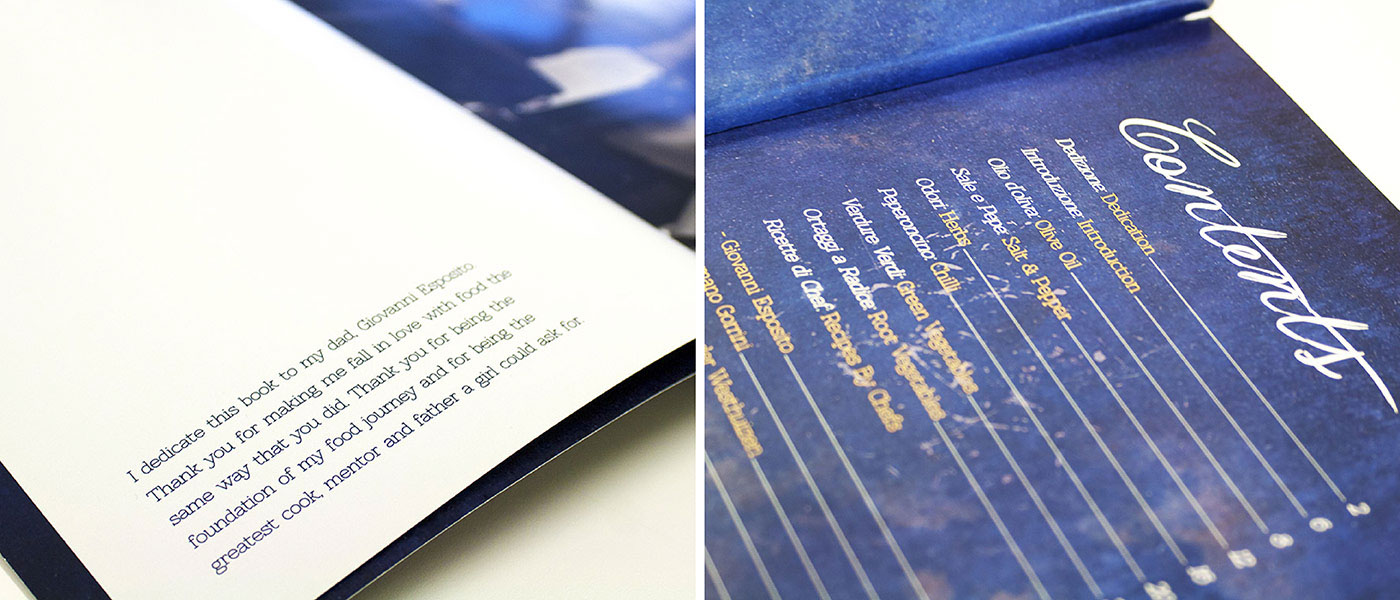 I dedicate this book to my dad, Giovanni Esposito
Thank you for making me fall in love with food the
same way that you did. Thank you for being the
foundation of my food journey and for being the
greatest cook, mentor and father a girl could ask for.
Contents
Dedizione: Dedication 2
Introduzione: Introduction 6
Olio d'oliva: Olive Oil 8
Sale e Pepe: Salt & Pepper 12
Odori: Herbs 16
Peperoncino: Chilli
Verdure Verdi: Green Vegetables
Ortaggi a Radice: Root Vegetables
Ricette di Chef: Recipes By Chefs
- Giovanni Esposito
Gorrini
Westhuizen